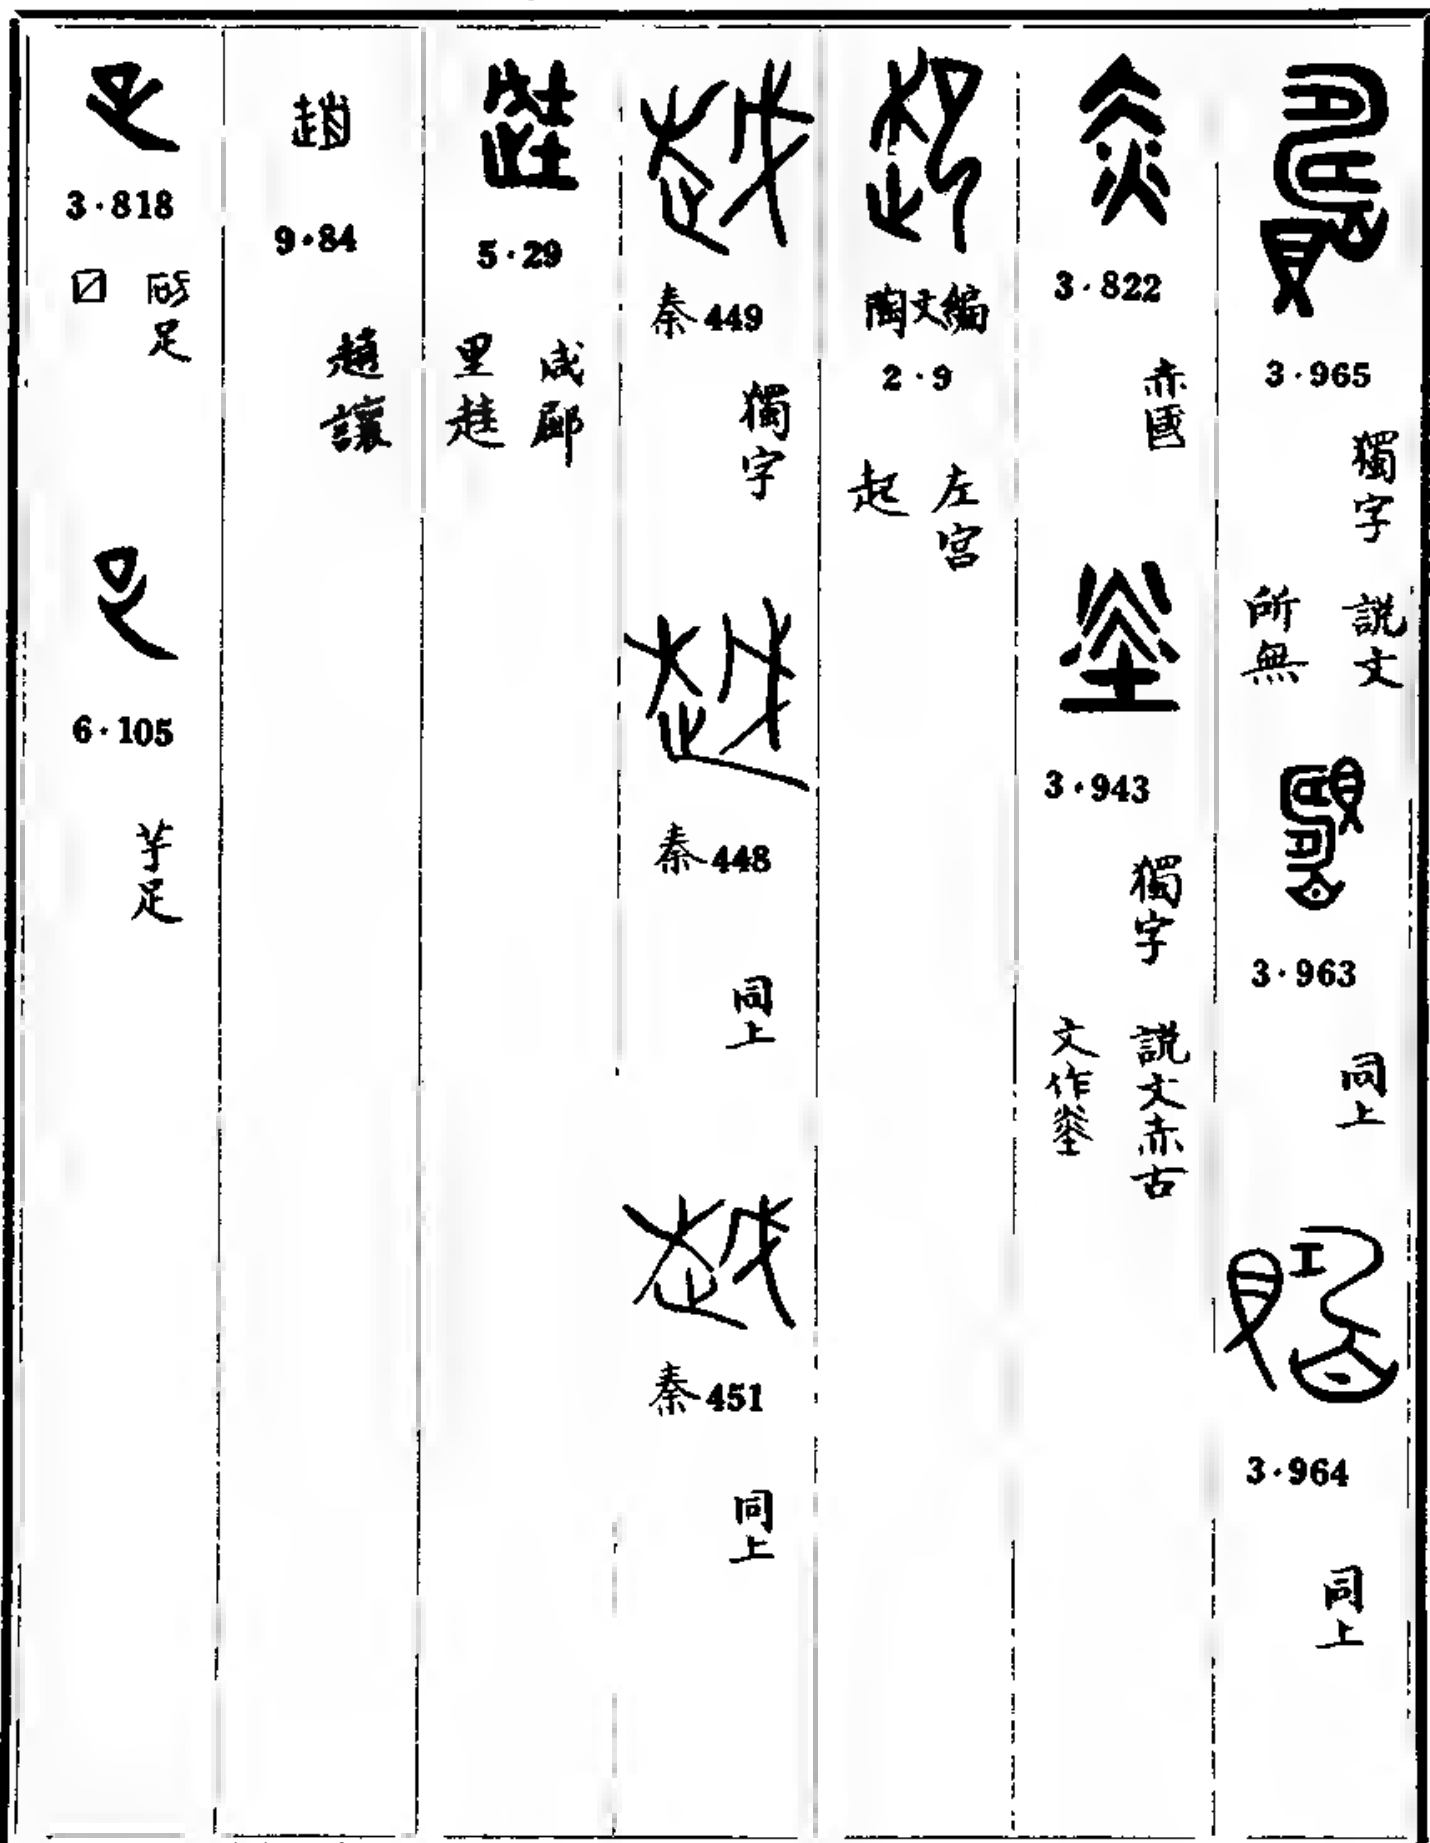 3·965
獨字
説文
所無
3·963
同上
3·964
同上
3·822
赤國
3·943
獨字
説文赤古
文作烾
陶文編
2·9
左宮
起
秦449
獨字
秦448
同上
秦451
同上
5·29
咸郿
里趌
趙
9·84
趙讓
3·818
足
6·105
芉足